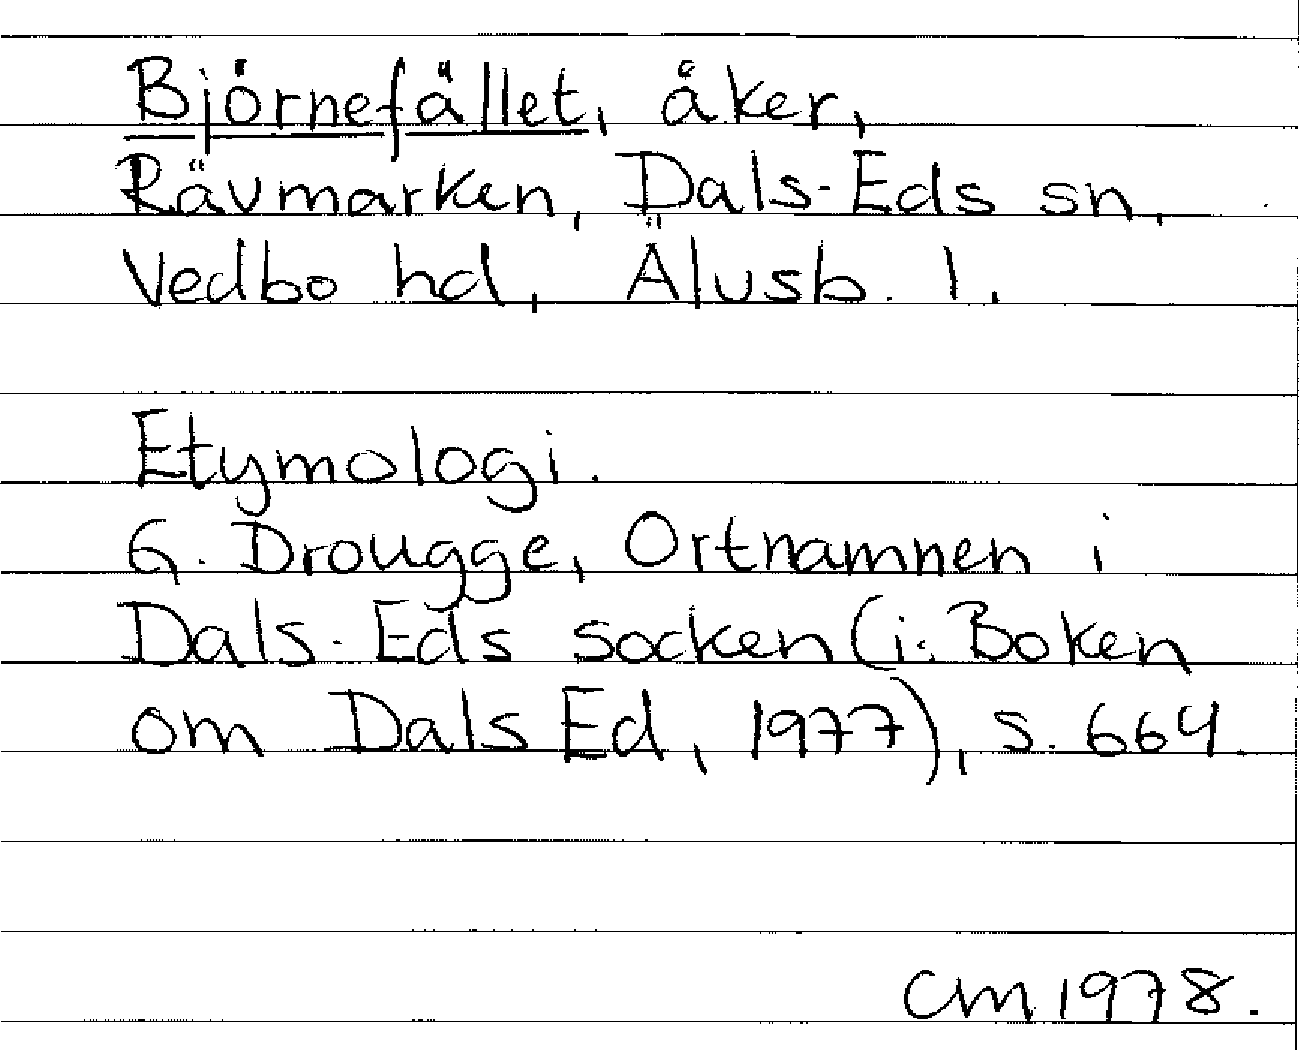 Björnefället, åker,
Rävmarken, Dals-Eds sn,
Vedbo hd, Älvsb. l.
Etymologi.
G. Drougge, Ortnamnen i
Dals-Eds socken (i: Boken
om Dals Ed, 1977), s. 664.
CM 1978.